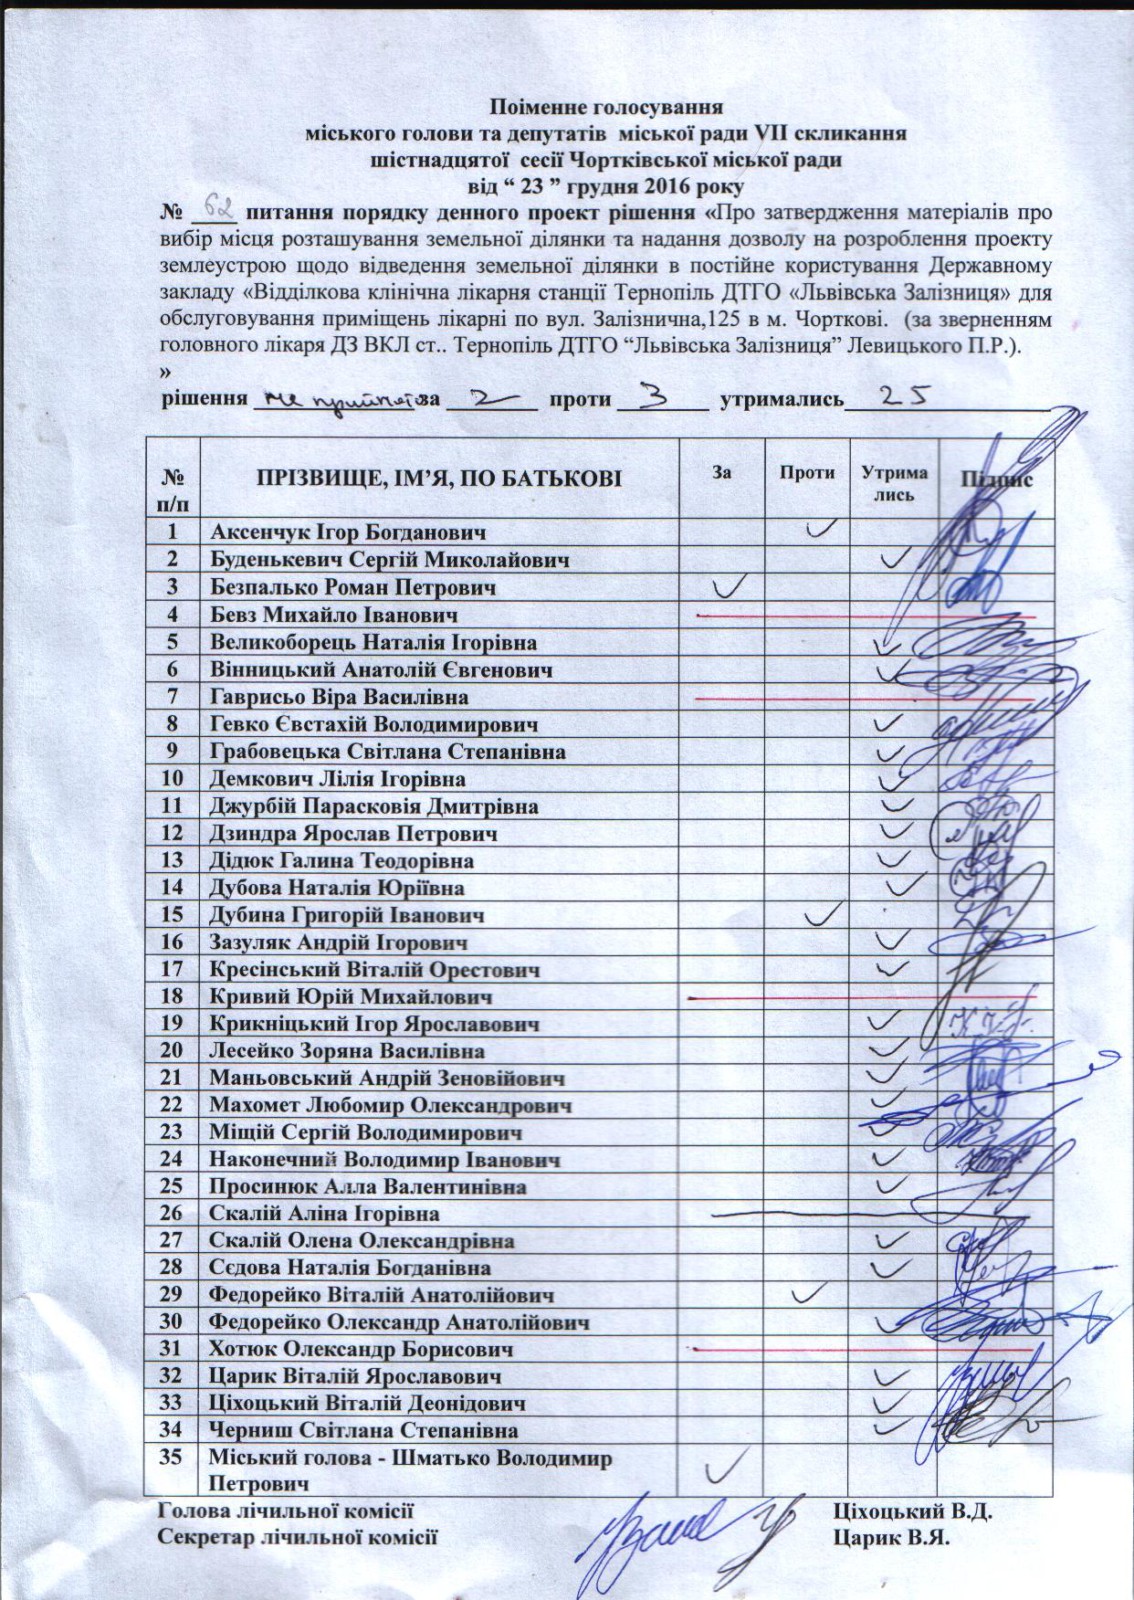 Поіменне голосування
міського голови та депутатів міської ради VII скликання
шістнадцятої сесії Чортківської міської ради
від “ 23 ” грудня 2016 року
№ 62 питання порядку денного проект рішення «Про затвердження матеріалів про
вибір місця розташування земельної ділянки та надання дозволу на розроблення проекту
землеустрою щодо відведення земельної ділянки в постійне користування Державному
закладу «Відділкова клінічна лікарня станції Тернопіль ДТГО «Львівська Залізниця» для
обслуговування приміщень лікарні по вул. Залізнична,125 в м. Чорткові. (за зверненням
головного лікаря ДЗ ВКЛ ст.. Тернопіль ДТГО “Львівська Залізниця” Левицького П.Р.).
»
рішення не прийнято за 2 проти 3 утримались 25
№ п/п ПРІЗВИЩЕ, ІМ’Я, ПО БАТЬКОВІ За Проти Утрима лись Підпис
1 Аксенчук Ігор Богданович
2 Буденькевич Сергій Миколайович
3 Безпалько Роман Петрович
4 Бевз Михайло Іванович
5 Великоборець Наталія Ігорівна
6 Вінницький Анатолій Євгенович
7 Гаврисьо Віра Василівна
8 Гевко Євстахій Володимирович
9 Грабовецька Світлана Степанівна
10 Демкович Лілія Ігорівна
11 Джурбій Парасковія Дмитрівна
12 Дзиндра Ярослав Петрович
13 Дідюк Галина Теодорівна
14 Дубова Наталія Юріївна
15 Дубина Григорій Іванович
16 Зазуляк Андрій Ігорович
17 Кресінський Віталій Орестович
18 Кривий Юрій Михайлович
19 Крикніцький Ігор Ярославович
20 Лесейко Зоряна Василівна
21 Маньовський Андрій Зеновійович
22 Махомет Любомир Олександрович
23 Міщій Сергій Володимирович
24 Наконечний Володимир Іванович
25 Просинюк Алла Валентинівна
26 Скалій Аліна Ігорівна
27 Скалій Олена Олександрівна
28 Сєдова Наталія Богданівна
29 Федорейко Віталій Анатолійович
30 Федорейко Олександр Анатолійович
31 Хотюк Олександр Борисович
32 Царик Віталій Ярославович
33 Ціхоцький Віталій Деонідович
34 Черниш Світлана Степанівна
35 Міський голова - Шматько Володимир
Петрович
Голова лічильної комісії Ціхоцький В.Д.
Секретар лічильної комісії Царик В.Я.